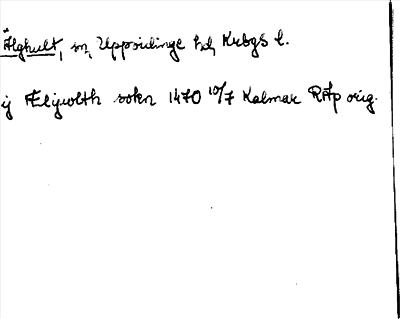 Älghult, sn, Uppvidinge hd, Krbgs l.
ij Ælijwolth sokn 1470 10/7 Kalmar RAp orig.